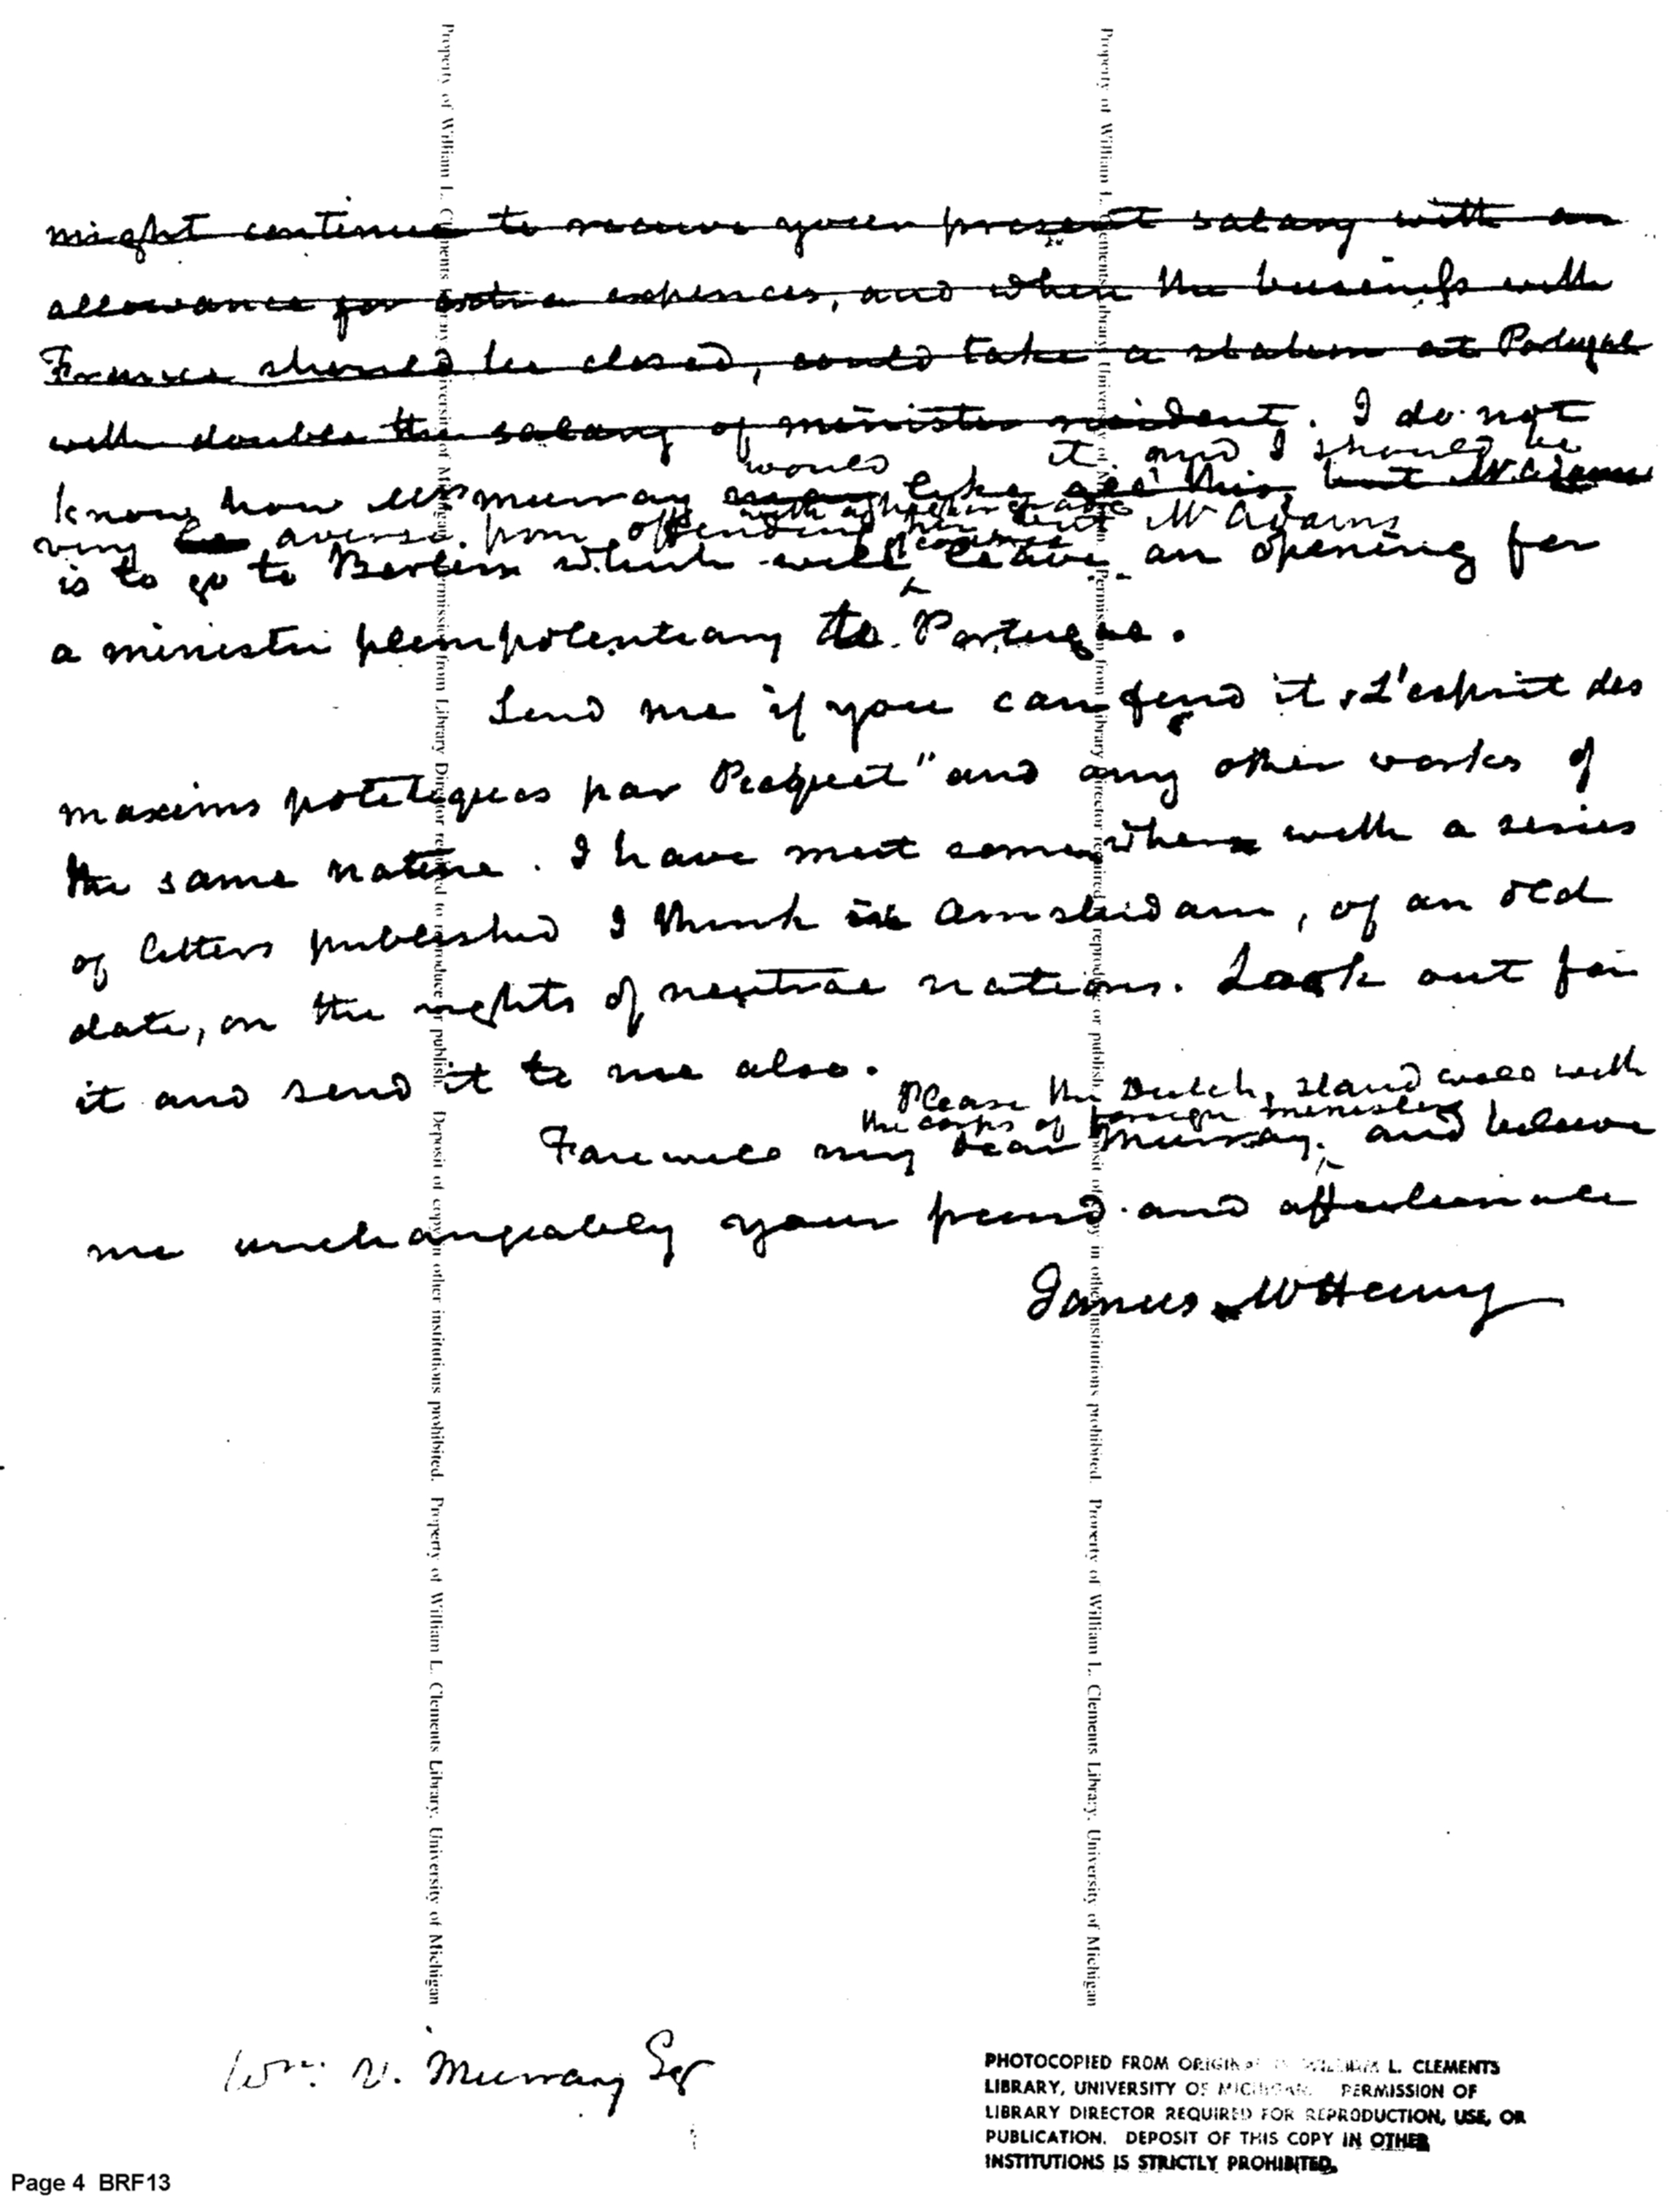 might continue to receive your present salary with an
allowance for extra expences, and when the business with
France should be closed, could take a station at Portugal
with double the salary of minister resident. I do not
would it. and I should be
know how Mrs Murray may like this, but Mr Adams
very averse from offending her, but Mr Adams
is to go to Berlin which will leave an opening for
a minister plenipotentiary to Portugal.
Send me if you can find it, L'esprit des
maxims potitiques par Pecquet" and any other works of
the same nature. I have met somewhere with a series
of letters published I think in Amsterdam, of an old
date, on the rights of neutral nations. Look out for
it and send it to me also.
Please the Dutch, stand well with
the corps of foreign ministers
Farewell my dear Murray, and believe
me unchangeably your friend and affectionate
James McHenry
Wm: V. Murray Esqr
PHOTOCOPIED FROM ORIGINAL IN WILLIAM L. CLEMENTS
LIBRARY, UNIVERSITY OF MICHIGAN. PERMISSION OF
LIBRARY DIRECTOR REQUIRED FOR REPRODUCTION, USE, OR
PUBLICATION. DEPOSIT OF THIS COPY IN OTHER
INSTITUTIONS IS STRICTLY PROHIBITED.
Page 4 BRF13
Property of William L. Clements Library, University of Michigan. Permission from Library Director required to reproduce or publish. Deposit of copy in other institutions prohibited. Property of William L. Clements Library, University of Michigan
Property of William L. Clements Library, University of Michigan. Permission from Library Director required to reproduce or publish. Deposit of copy in other institutions prohibited. Property of William L. Clements Library, University of Michigan